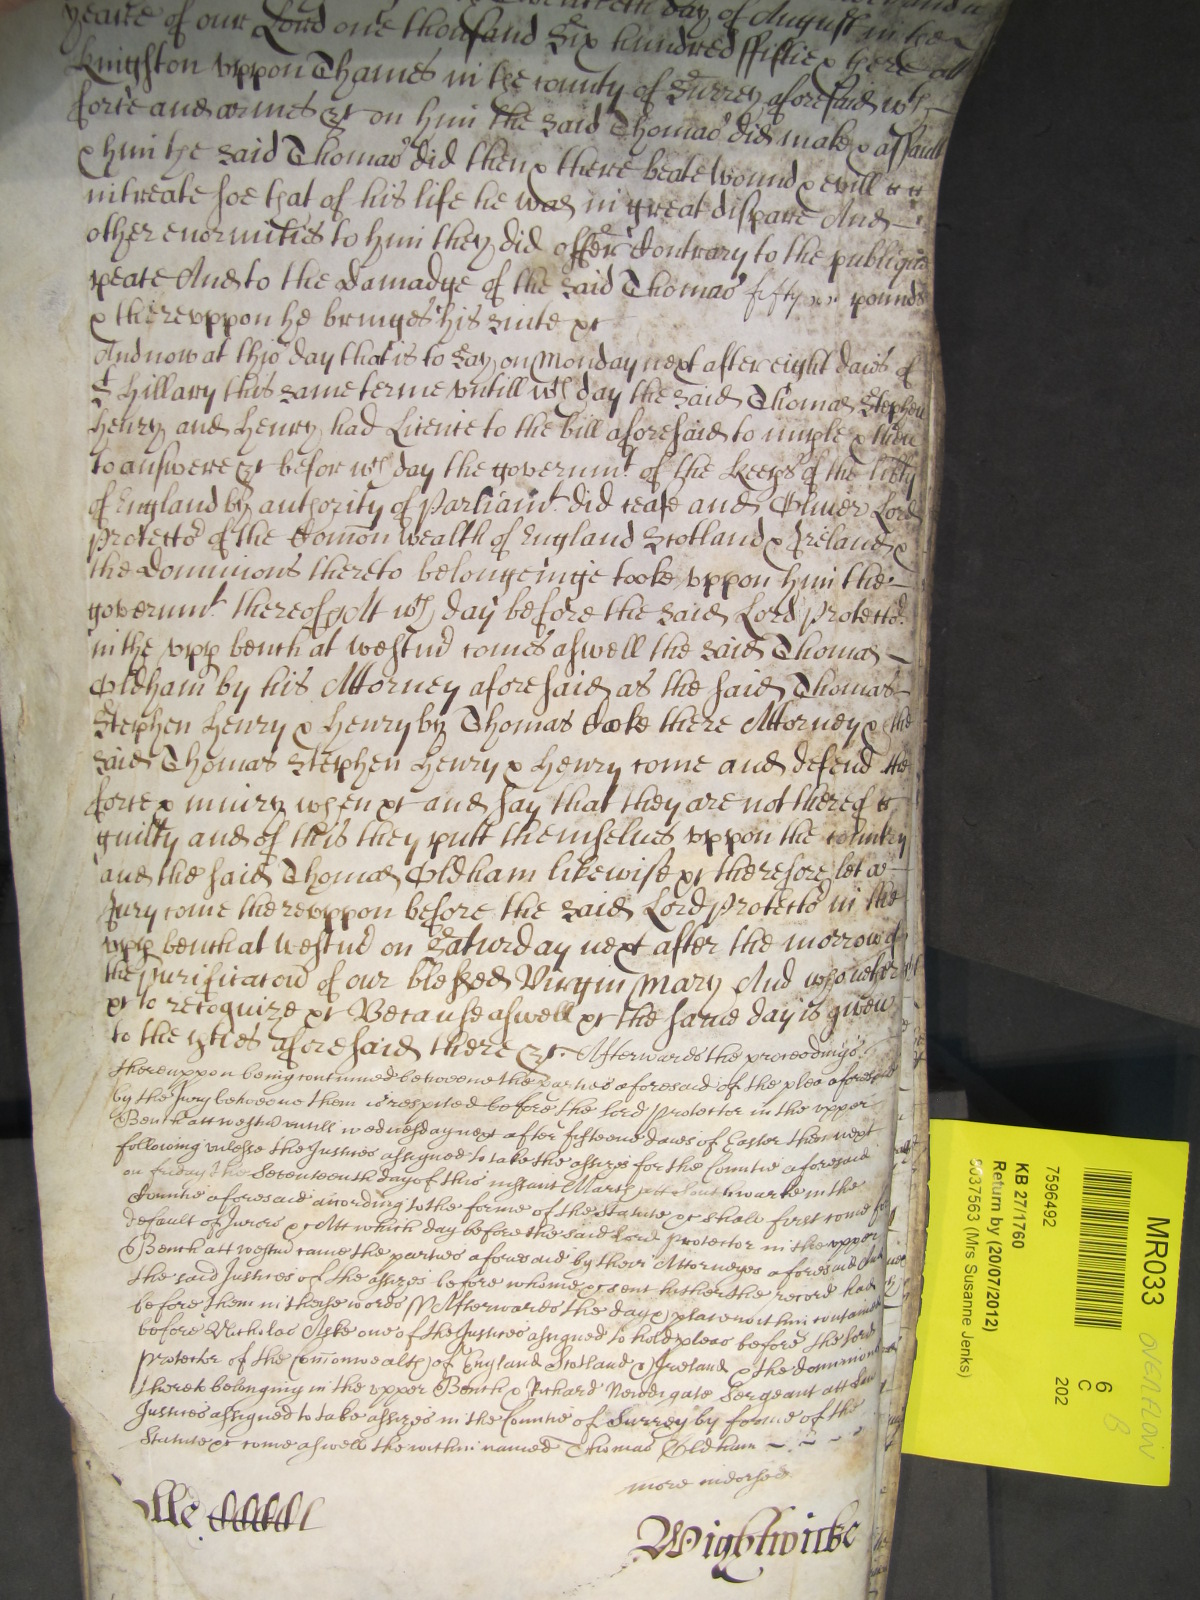 yeare of our Lord one thousand Six hundred ffiftie & there att
Kingston vppon Thames in the county of Surrey aforesaid wth
force and armes &c on him the said Thomas did make & assault
& him the said Thomas did then & there beate wound & evill
intreate soe that of his life he was in great dispare And
other enormities to him they did offer Contrary to the publique
peace And to the Damadge of the said Thomas fifty pounds
& therevppon he bringes his suite &c
And now at this day that is to say on Monday next after eight daies of
St Hillary this same terme vntill wch day the said Thomas Stephen
Henry and Henry had Licence to the bill aforesaid to imple & then
to answere &c before wch day the governmt of the Keeps of the libty
of England by authority of Parliamt did cease and Oliver Lord
Protector of the Comon wealth of England Scotland & Ireland &
the Dominions thereto belongeinge tooke vppon him the
governmt thereof Att wch day before the said Lord Protector
in the vpp bench at westmr comes aswell the said Thomas
Oldham by his Attorney aforesaid as the said Thomas
Stephen Henry & Henry by Thomas Cooke there Attorney & the
said Thomas Stephen Henry & Henry come and defend the
force & iniury when &c and say that they are not thereof
guilty and of this they putt themselues vppon the country
and the said Thomas Oldham likewise &c therefore let a
Jury come therevppon before the said Lord Protector in the
vpp bench at westmr on Saturday next after the morrow of
the Purificacon of our blessed Virgin Mary And who nether
&c to recognize &c Because aswell &c the same day is given
to the pties aforesaid there &c. Afterwards the proceedings
therevppon being continued betweene the parties aforesaid of the plea aforesaid
by the Jury betweene them is respited before the Lord Protector in the vpper
Bench att westmr vntill wednesday next after fifteene daies of Easter then next
following vnlesse the Justices assigned to take the assizes for the Countie aforesaid
on Friday the Seventeenth day of this instant March att Southwarke in the
Countie aforesaid according to the forme of the Statute &c shall first come for
default of Jurors &c Att which day before the said Lord Protector in the vpper
Bench att westmr came the parties aforesaid by their Attorneyes aforesaid And
the said Justices of the assizes before whome &c sent hither the record had
before them in these words Afterwards the day & place within contained
before Nicholas Aske one of the Justices assigned to hold pleas before the Lord
Protector of the Commonwealth of England Scotland & Ireland & the dominions
thereto belonging in the vpper Bench & Richard Newdigate Sergeant att Law
Justices assigned to take assizes in the Countie of Surrey by forme of the
Statute &c come aswell the within named Thomas Oldham
more indorsed
Wightwicke
MR033
OVERFLOW
B
6
C
202
7596492
KB 27/1760
Return by (20/07/2012)
5037563 (Mrs Susanne Jenks)